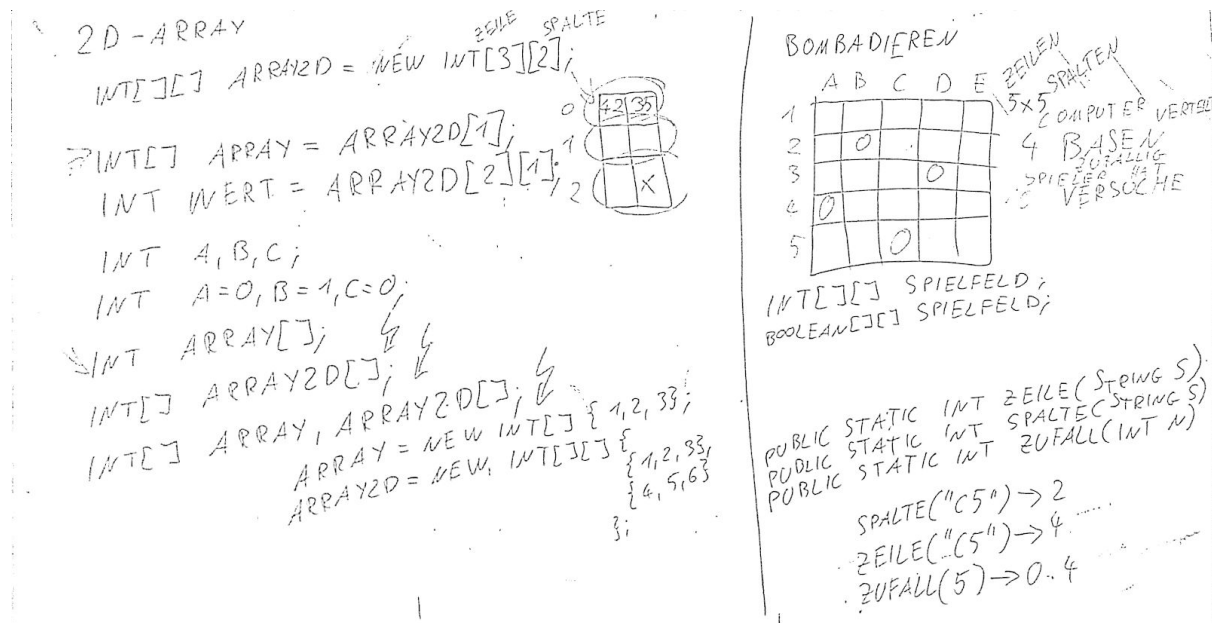 2D-ARRAY
ZEILE SPALTE
INT[][] ARRAY2D = NEW INT[3][2];
0 42 35
1
2 X
? INT[] ARRAY = ARRAY2D[1];
INT WERT = ARRAY2D[2][1];
INT A, B, C;
INT A=0, B=1, C=0;
INT ARRAY[];
INT[] ARRAY2D[];
INT[] ARRAY, ARRAY2D[];
ARRAY = NEW INT[] {1,2,3};
ARRAY2D = NEW INT[][] {
{1,2,3},
{4,5,6}
};
BOMBADIEREN
ZEILEN
SPALTEN
A B C D E
5x5
1
2 O
3 O
4 O
5 O
COMPUTER
4 BASEN
ZUFÄLLIG
SPIELER HAT
VERSUCHE
INT[][] SPIELFELD;
BOOLEAN[][] SPIELFELD;
PUBLIC STATIC INT ZEILE(STRING S)
PUBLIC STATIC INT SPALTE(STRING S)
PUBLIC STATIC INT ZUFALL(INT N)
SPALTE("C5") → 2
ZEILE("C5") → 4
ZUFALL(5) → 0..4